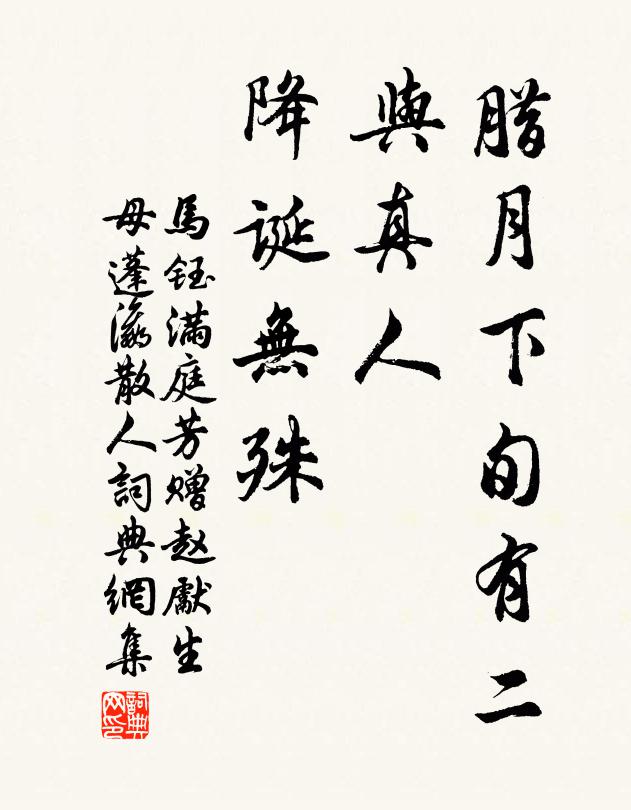 腊月下旬有二
與真人
降誕無殊
馬鈺满庭芳赠赵獻生
母蓬瀛散人詞典網集
詞典网印